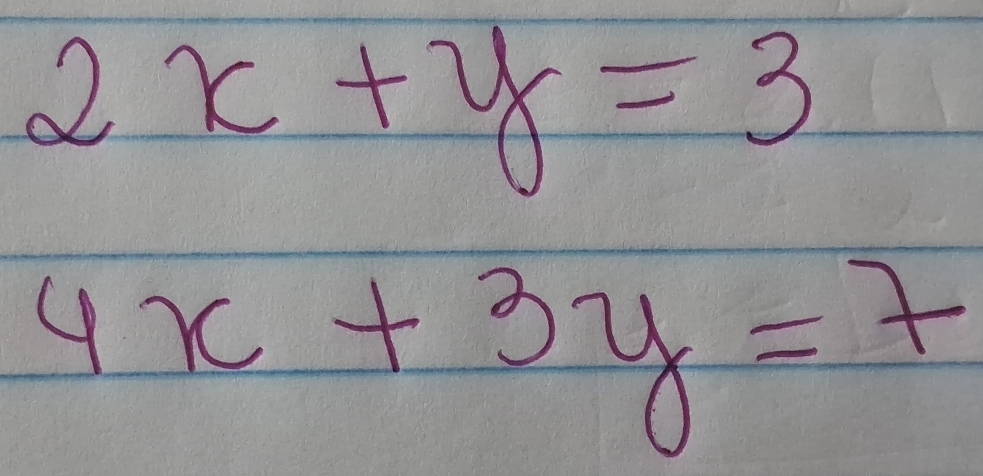 2x + y = 3
4x + 3y = 7